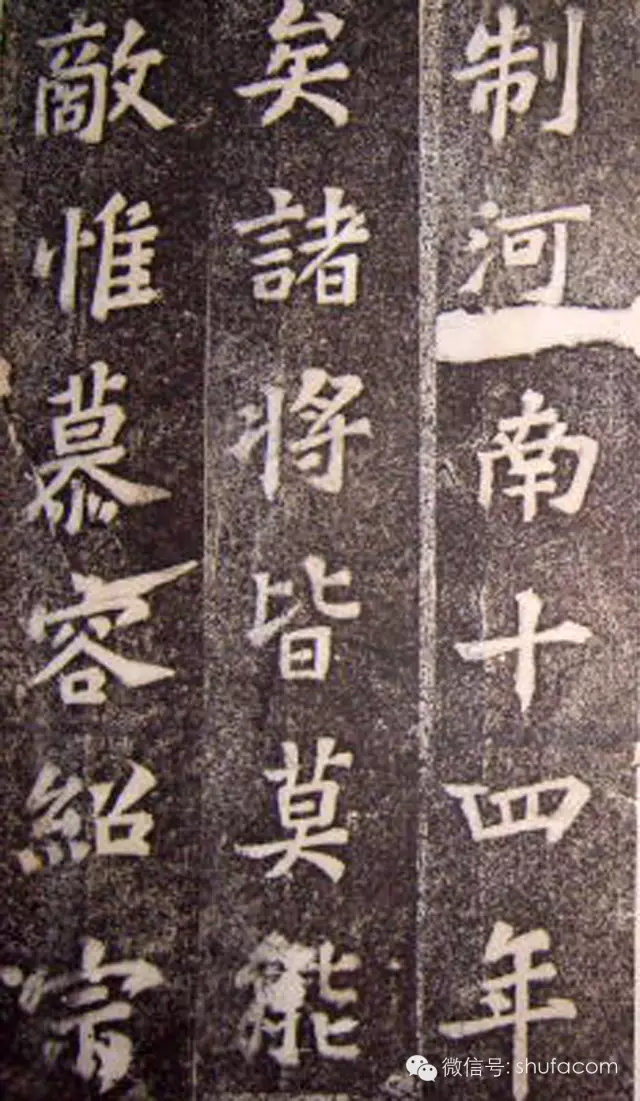 制河南十四年
矣諸將皆莫能
敵惟慕容紹宗
微信号: shufacom